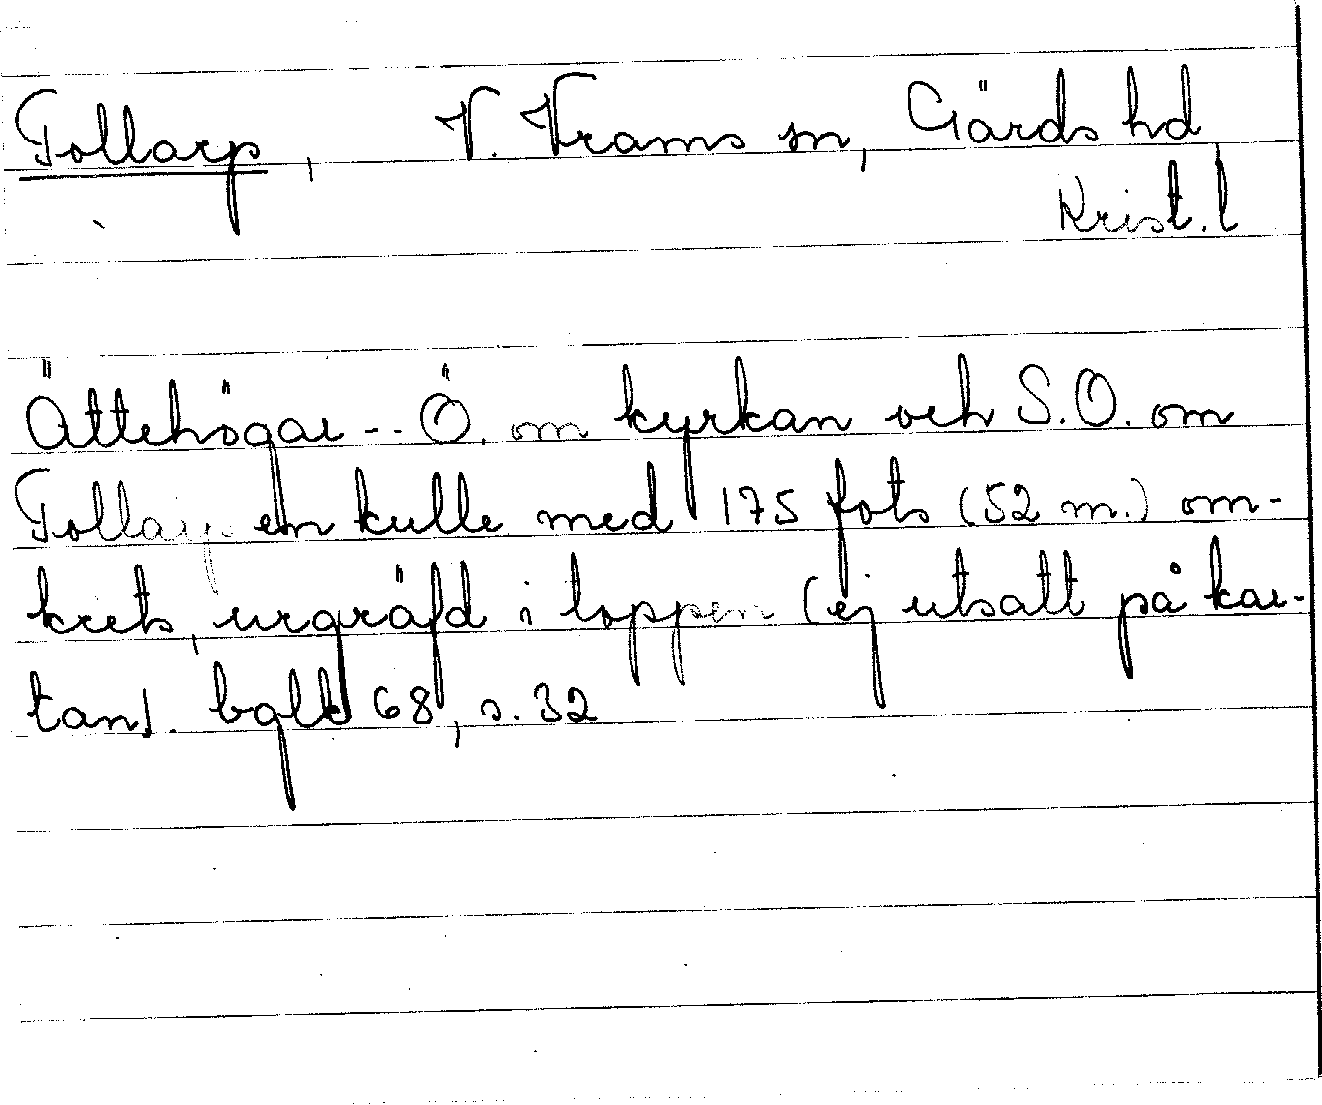 Tollarp, V. Vrams sn, Gärds hd
Krist. l
Ättehögar -- Ö. om kyrkan och S.O. om
Tollarp en kulle med 175 fots (52 m.) om-
krets, urgräfd i toppen (ej utsatt på kar-
tan). bgld 68, s. 32